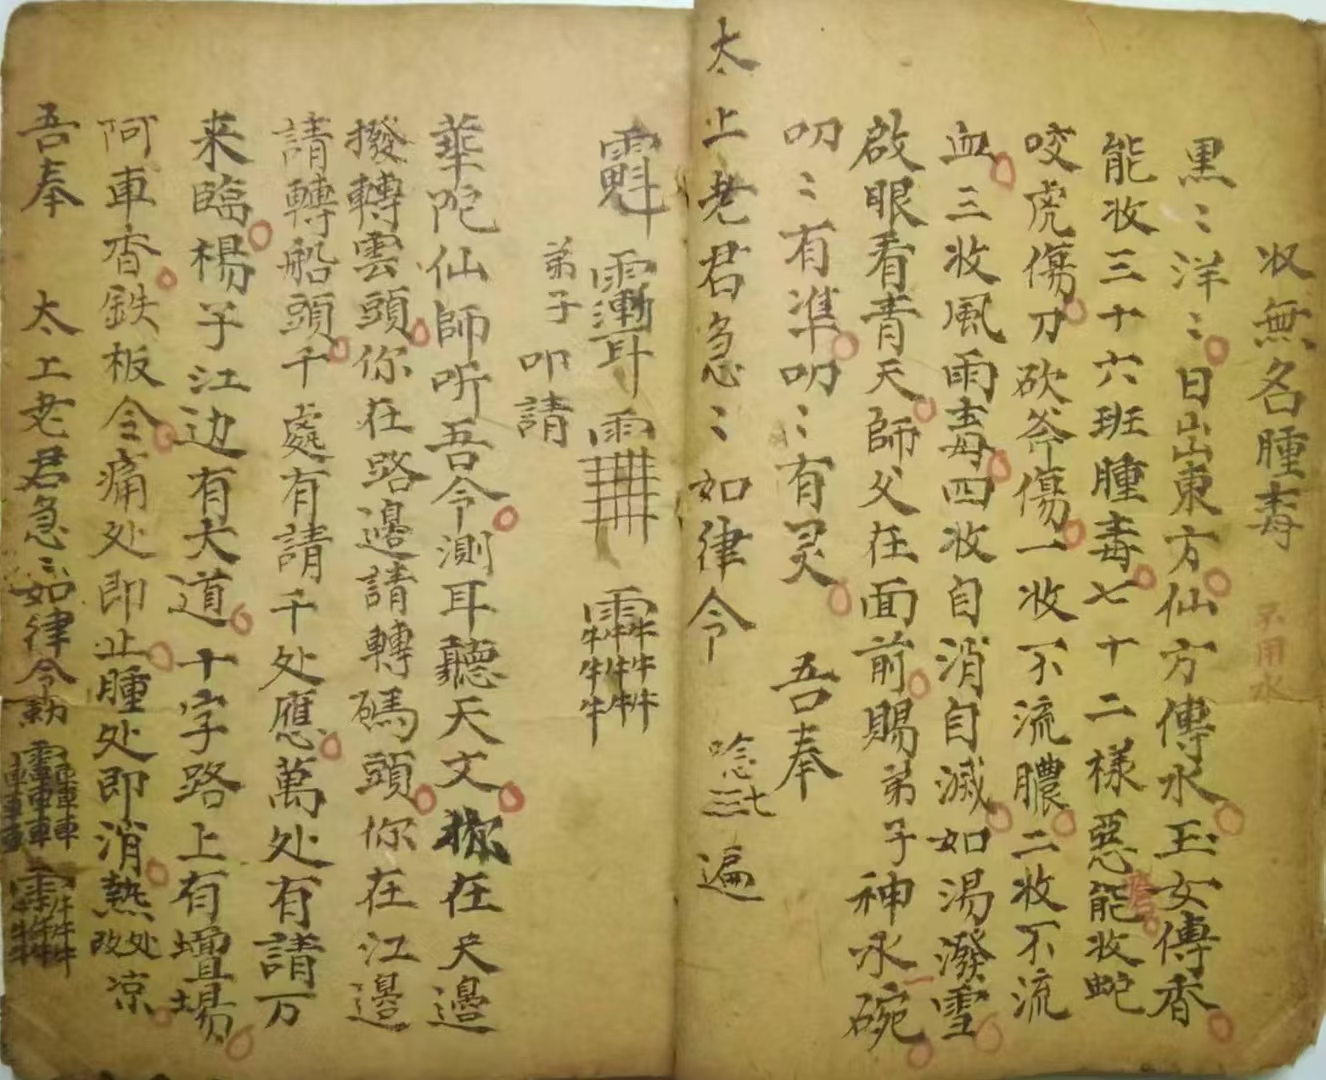 收無名腫毒 不用水
黒〻洋〻日出東方仙方傳水玉女傳香
能收三十六班腫毒七十二樣惡瘡能收蛇
咬虎傷刀砍斧傷一收不流膿二收不流
血三收風雨毒四收自消自滅如湯潑雪
啟眼看青天師父在面前賜弟子神水一碗
叨〻有凖叨〻有灵 吾奉
太上老君急〻如律令 唸三七遍
弟子 叩請
華陀仙師听吾令測耳聽天文你在天邊
撥轉雲頭你在路邊請轉碼頭你在江邊
請轉船頭千處有請千处應萬处有請万
来臨楊子江边有大道十字路上有壇場
阿車香鉄板令痛处即止腫处即消熱处改凉
吾奉 太上老君急〻如律令勅